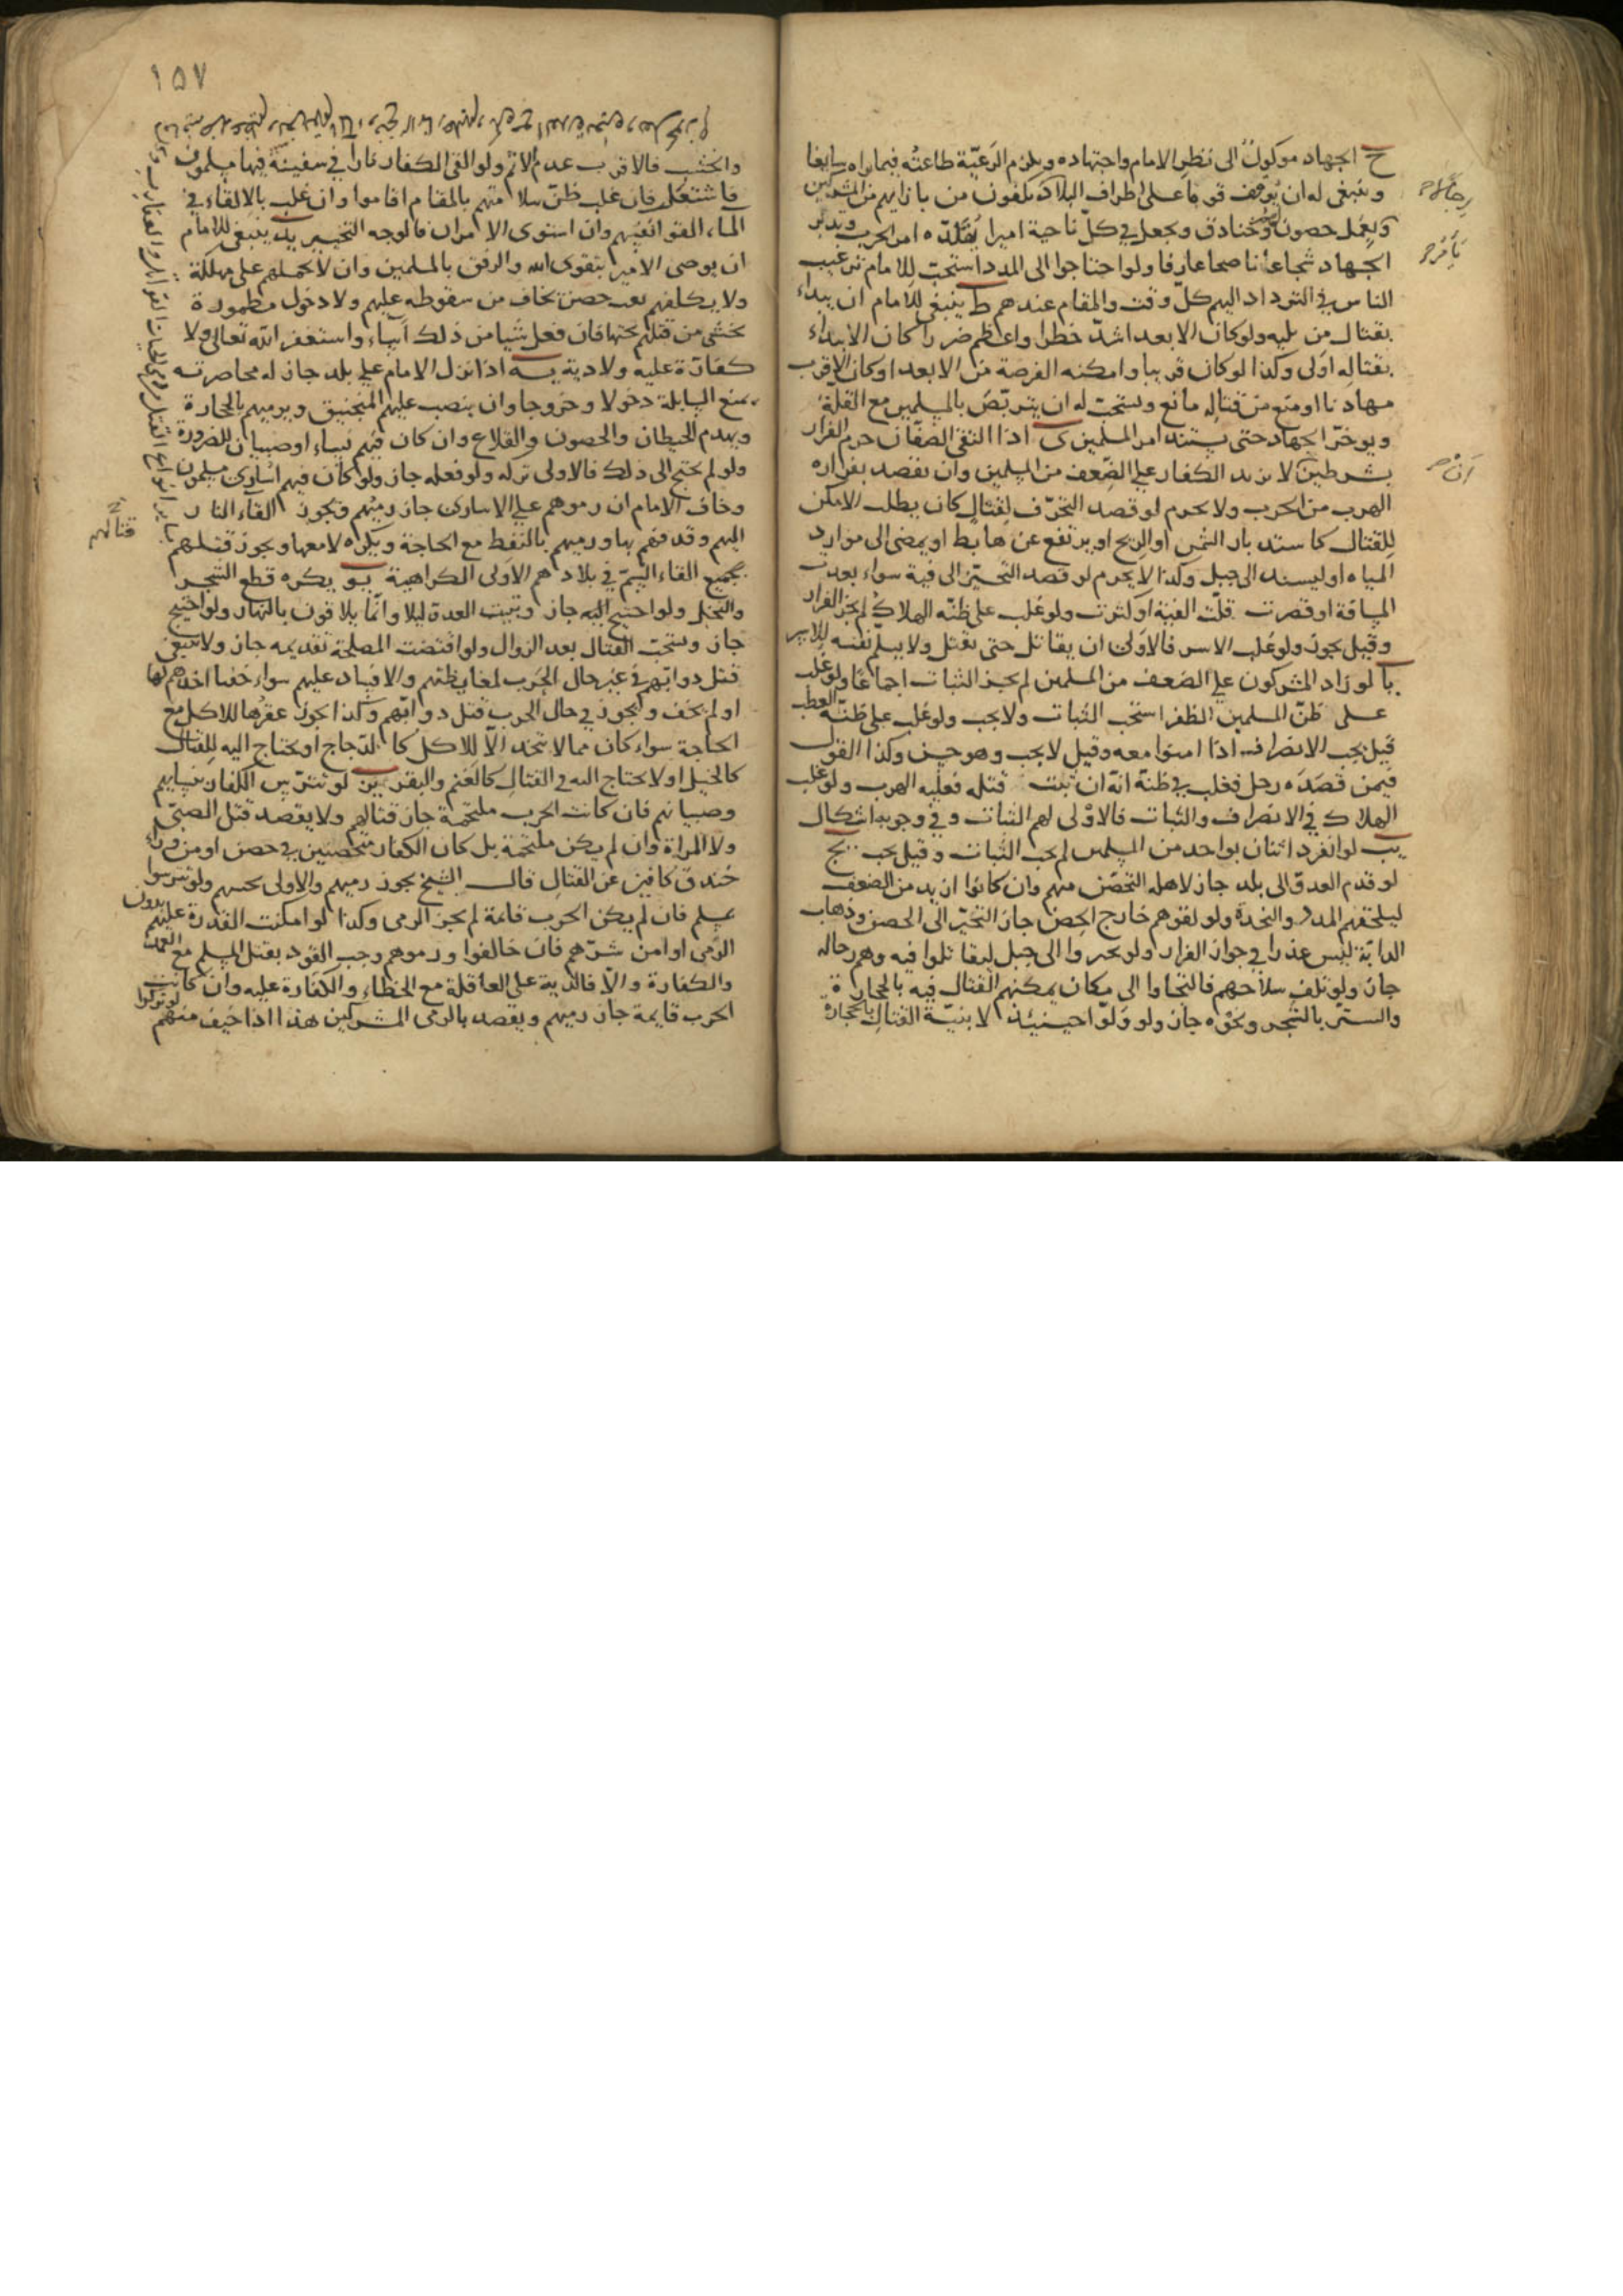 ح الجهاد موكول الى نظر الامام واجتهاده ويلزم الرعيّة طاعته فيما يراه سايغا
وينبغى له ان يوقف قوما على اطراف البلاد يكفون من بازايهم من المشركين
ويعمل حصونهم وخنادق ويجعل في كلّ ناحية اميرا يقلّده امر الحرب وتدبّر
الجهاد شجاعا ناصحا عارفا ولو احتاجوا الى المدد استحبّ للامام ترغيب
الناس في التوداد اليهم كلّ وقت والمقام عندهم ط ينبغى للامام ان يبداء
بقتال من يليه ولو كان الابعد اشدّ خطرا واعظم ضررا كان الابتداء
بقتاله اولى وكذا لو كان قريبا وامكنه الفرصة من الابعد او كان الاقرب
مهادنا او منع من قتاله مانع ويستحبّ له ان يتربّص بالمسلمين مع القلة
ويوخرّ الجهاد حتى يشتد امر المسلمين ى اذا التقى الصفّان حرم الفرار
بشرطين لا يزيد الكفار على الضّعف من المسلمين وان يقصد بفراره
الهرب من الحرب ولا يحرم لو قصد التحرّف لقتال كان يطلب الامكن
للقتال كاستدبار الشمس او الريح او يرتفع عن هابط او يمضى الى موارد
المياه او ليستند الى جبل وكذا لا يحرم لو قصد التحيّز الى فية سواء بعدت
المسافة او قصرت قلّت الفية او كثرت ولو غلب على ظنّه الهلاك لم يجز الفرار
وقيل يجوز ولو غلب الاسر فالاولى ان يقاتل حتى يقتل ولا يسلّم نفسه للاسر
يا لو زاد المشركون على الضعف من المسلمين لم يجب الثبات اجماعا ولو غلب
على ظنّ المسلمين الظفر استحب الثبات ولا يجب ولو غلب على ظنّه العطب
قيل يجب الانصراف اذا امنوا معه وقيل لا يجب وهو حسن وكذا القول
فيمن قصده رجل فغلب في ظنّه انّه ان ثبت قتله فعليه الهرب ولو غلب
الهلاك في الانصراف والثبات فالاولى لهم الثبات وفي وجوبه اشكال
يب لو انفرد اثنان بواحد من المسلمين لم يجب الثبات وقيل يجب يج
لو قدم العدوّ الى بلد جاز لاهله التحصّن منهم وان كانوا ازيد من الضعف
ليلحقهم المدد والنجدة ولو لقوهم خارج الحصن جاز التحيّز الى الحصن وذهاب
الدابّة ليس عذرا في جواز الفرار ولو تحيزوا الى جبل ليقاتلوا فيه وهم رجاله
جاز ولو تلف سلاحهم فالتجاوا الى مكان يمكنهم القتال فيه بالحجارة
والستر بالشجر ونحوه جاز ولو ولّوا حينئذ لا بنيّة القتال بالحجارة
١٥٧
والخشب فالاقرب عدم الاثم ولو القى الكفار نارا في سفينة فيها مسلمون
فاشتعلت فان غلب ظنّ سلامتهم بالمقام اقاموا وان غلب بالالقاء في
الماء القوا انفسهم وان استوى الامران فالوجه التخيير يد ينبغى للامام
ان يوصى الامير بتقوى الله والرفق بالمسلمين وان لا يحملهم على مهلكة
ولا يكلفهم نقب حصن يخاف من سقوطه عليهم ولا دخول مطمورة
يخشى من قتلهم تحتها فان فعل شيا من ذلك اساء واستغفر الله تعالى ولا
كفارة عليه ولا دية يه اذا نزل الامام على بلد جاز له محاصرته
بمنع السابلة دخولا وخروجا وان ينصب عليهم المنجنيق ويرميهم بالحجارة
ويهدم الحيطان والحصون والقلاع وان كان فيهم نساء او صبيان للضرورة
ولو لم يحتج الى ذلك فالاولى تركه ولو فعله جاز ولو كان فيهم اسارى مسلمون
وخاف الامام ان رموهم على الاسارى جاز رميهم ويجوز القاء النار
اليهم وقذفهم بها ورميهم بالنفط مع الحاجة ويكره لا معها ويجوز قتلهم
بجميع القاء السّم في بلادهم الاولى الكراهية يو يكره قطع الشجر
والنخل ولو احتيج اليه جاز وتبييت العدو ليلا وانّما يلاقون بالنهار ولو احتيج
جاز ويستحبّ القتال بعد الزوال ولو اقتضت المصلحة تقديمه جاز ولا ينبغى
قتل دوابّهم في غير حال الحرب لمغايظتهم والافساد عليهم سواء خفنا اخذهم لها
او لم نخف ويجوز في حال الحرب قتل دوابّهم وكذا يجوز عقرها للاكل مع
الحاجة سواء كان مما لا يتخذ الّا للاكل كالدجاج او يحتاج اليه للقتال
كالخيل او لا يحتاج اليه في القتال كالغنم والبقر يز لو تترّس الكفار بنسايهم
وصبيانهم فان كانت الحرب ملتحمة جاز قتالهم ولا يقصد قتل الصبىّ
ولا المراة وان لم يكن ملتحمة بل كان الكفار متحصنين في حصن او من وراء
خندق كافين عن القتال قال الشيخ يجوز رميهم والاولى تجنبهم ولو تترسوا
بمسلم فان لم يكن الحرب قائمة لم يجز الرمى وكذا لو امكنت القدرة عليهم بدون
الرمى او امن شرّهم فان خالفوا ورموهم وجب القود بقتل المسلم مع العمد
والكفارة والّا فالدية على العاقلة مع الخطاء والكفارة عليه وان كانت
الحرب قايمة جاز رميهم ويقصد بالرمى المشركين هذا اذا خيف منهم لو تركوا
قتالهم